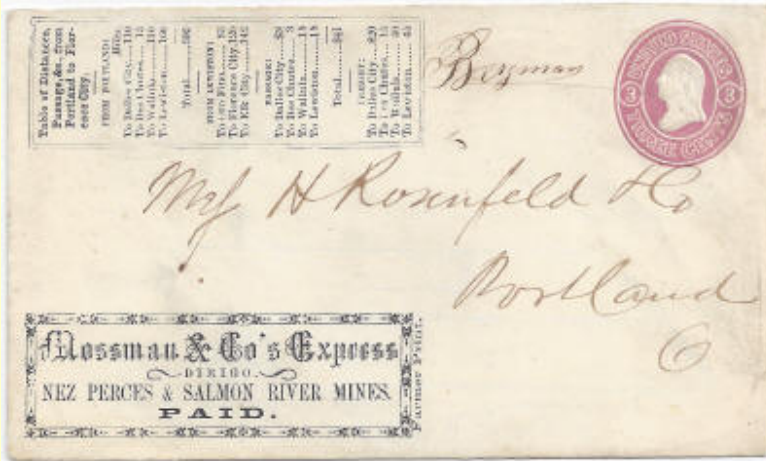 Table of Distances,
Passage, &c., from
Portland to Flor-
ence City.
FROM PORTLAND:
Miles
To Dalles City....110
To Des Chutes....15
To Wallula....110
To Lewiston....
Total
FROM LEWISTON:
To Florence City.120
To Elk City....142
PASSAGE:
To Dalles City....
To Des Chutes....
To Wallula....
To Lewiston....
Total
FREIGHT:
To Dalles City....$20
To Des Chutes....15
To Wallula....
To Lewiston....
UNITED STATES
3 3
THREE CENTS
Mess H Rosenfeld & Co
Portland
O
Mossman & Co's Express
DIRIGO.
NEZ PERCES & SALMON RIVER MINES.
PAID.
Print.